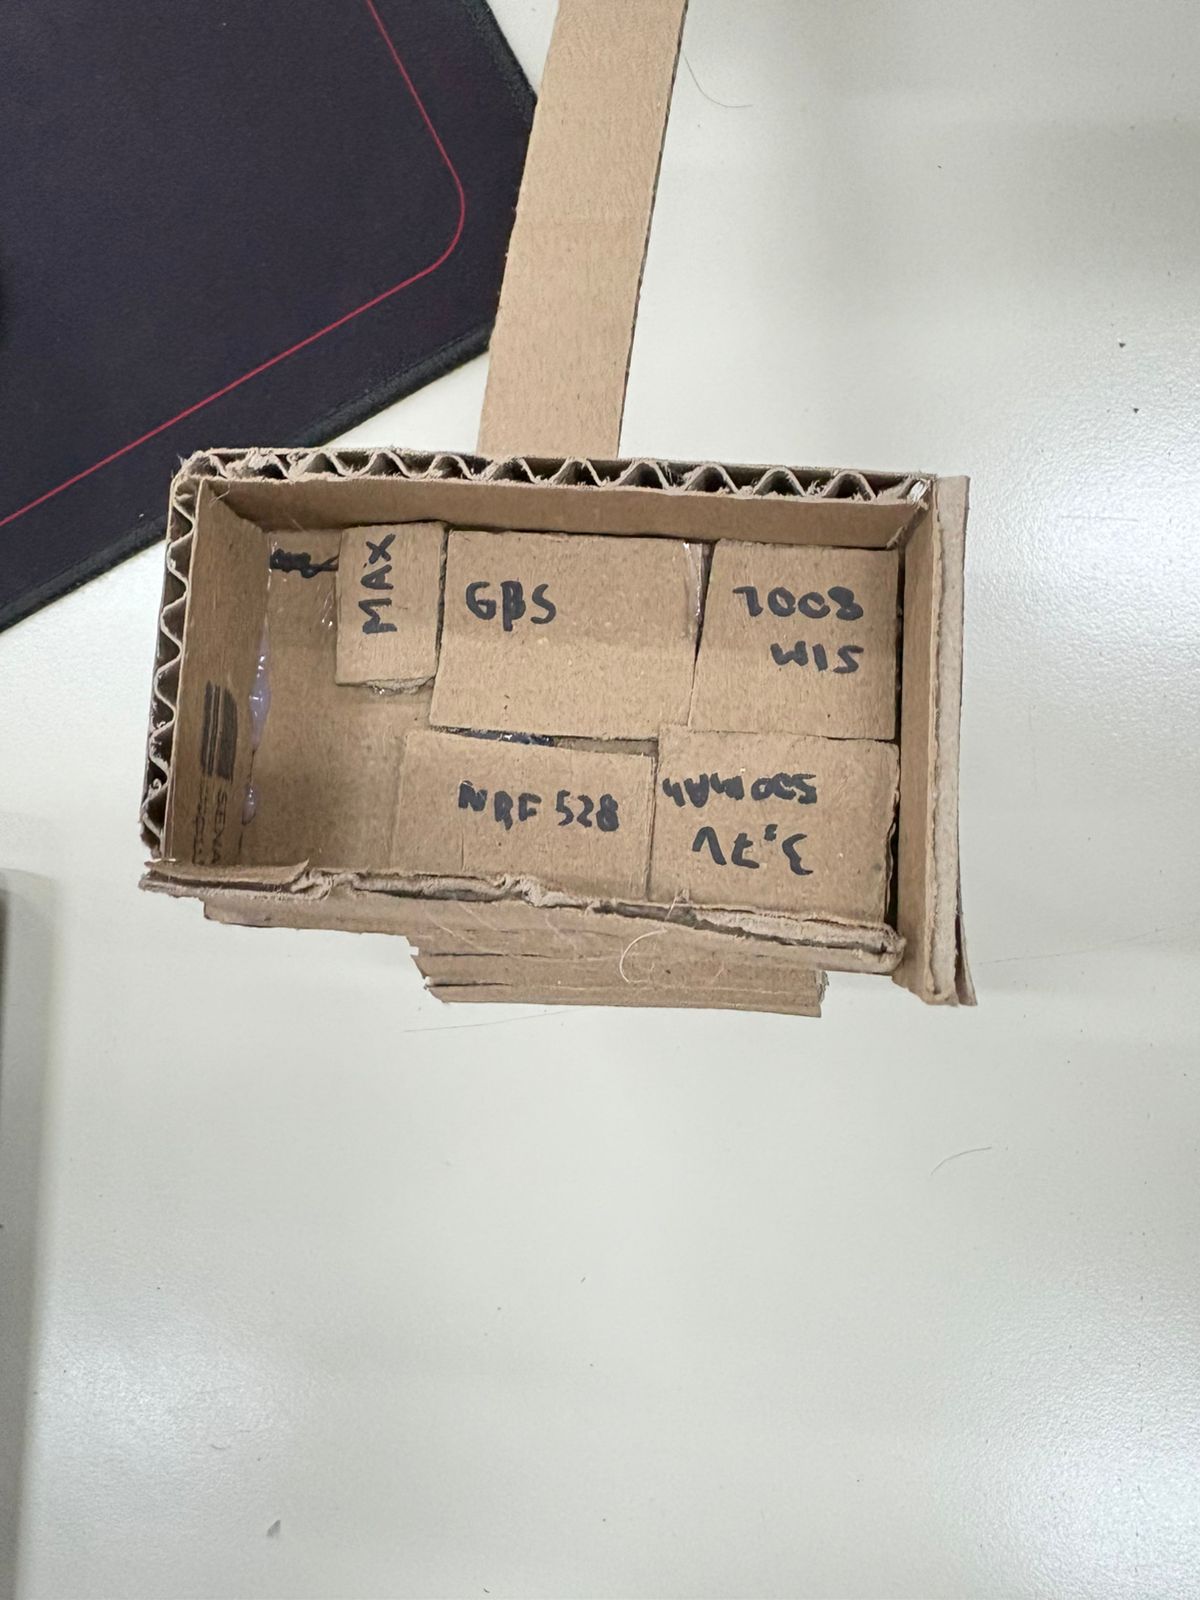 MAX
GPS
SIM
7008
NRF 528
3.7V
500MAh
SENA